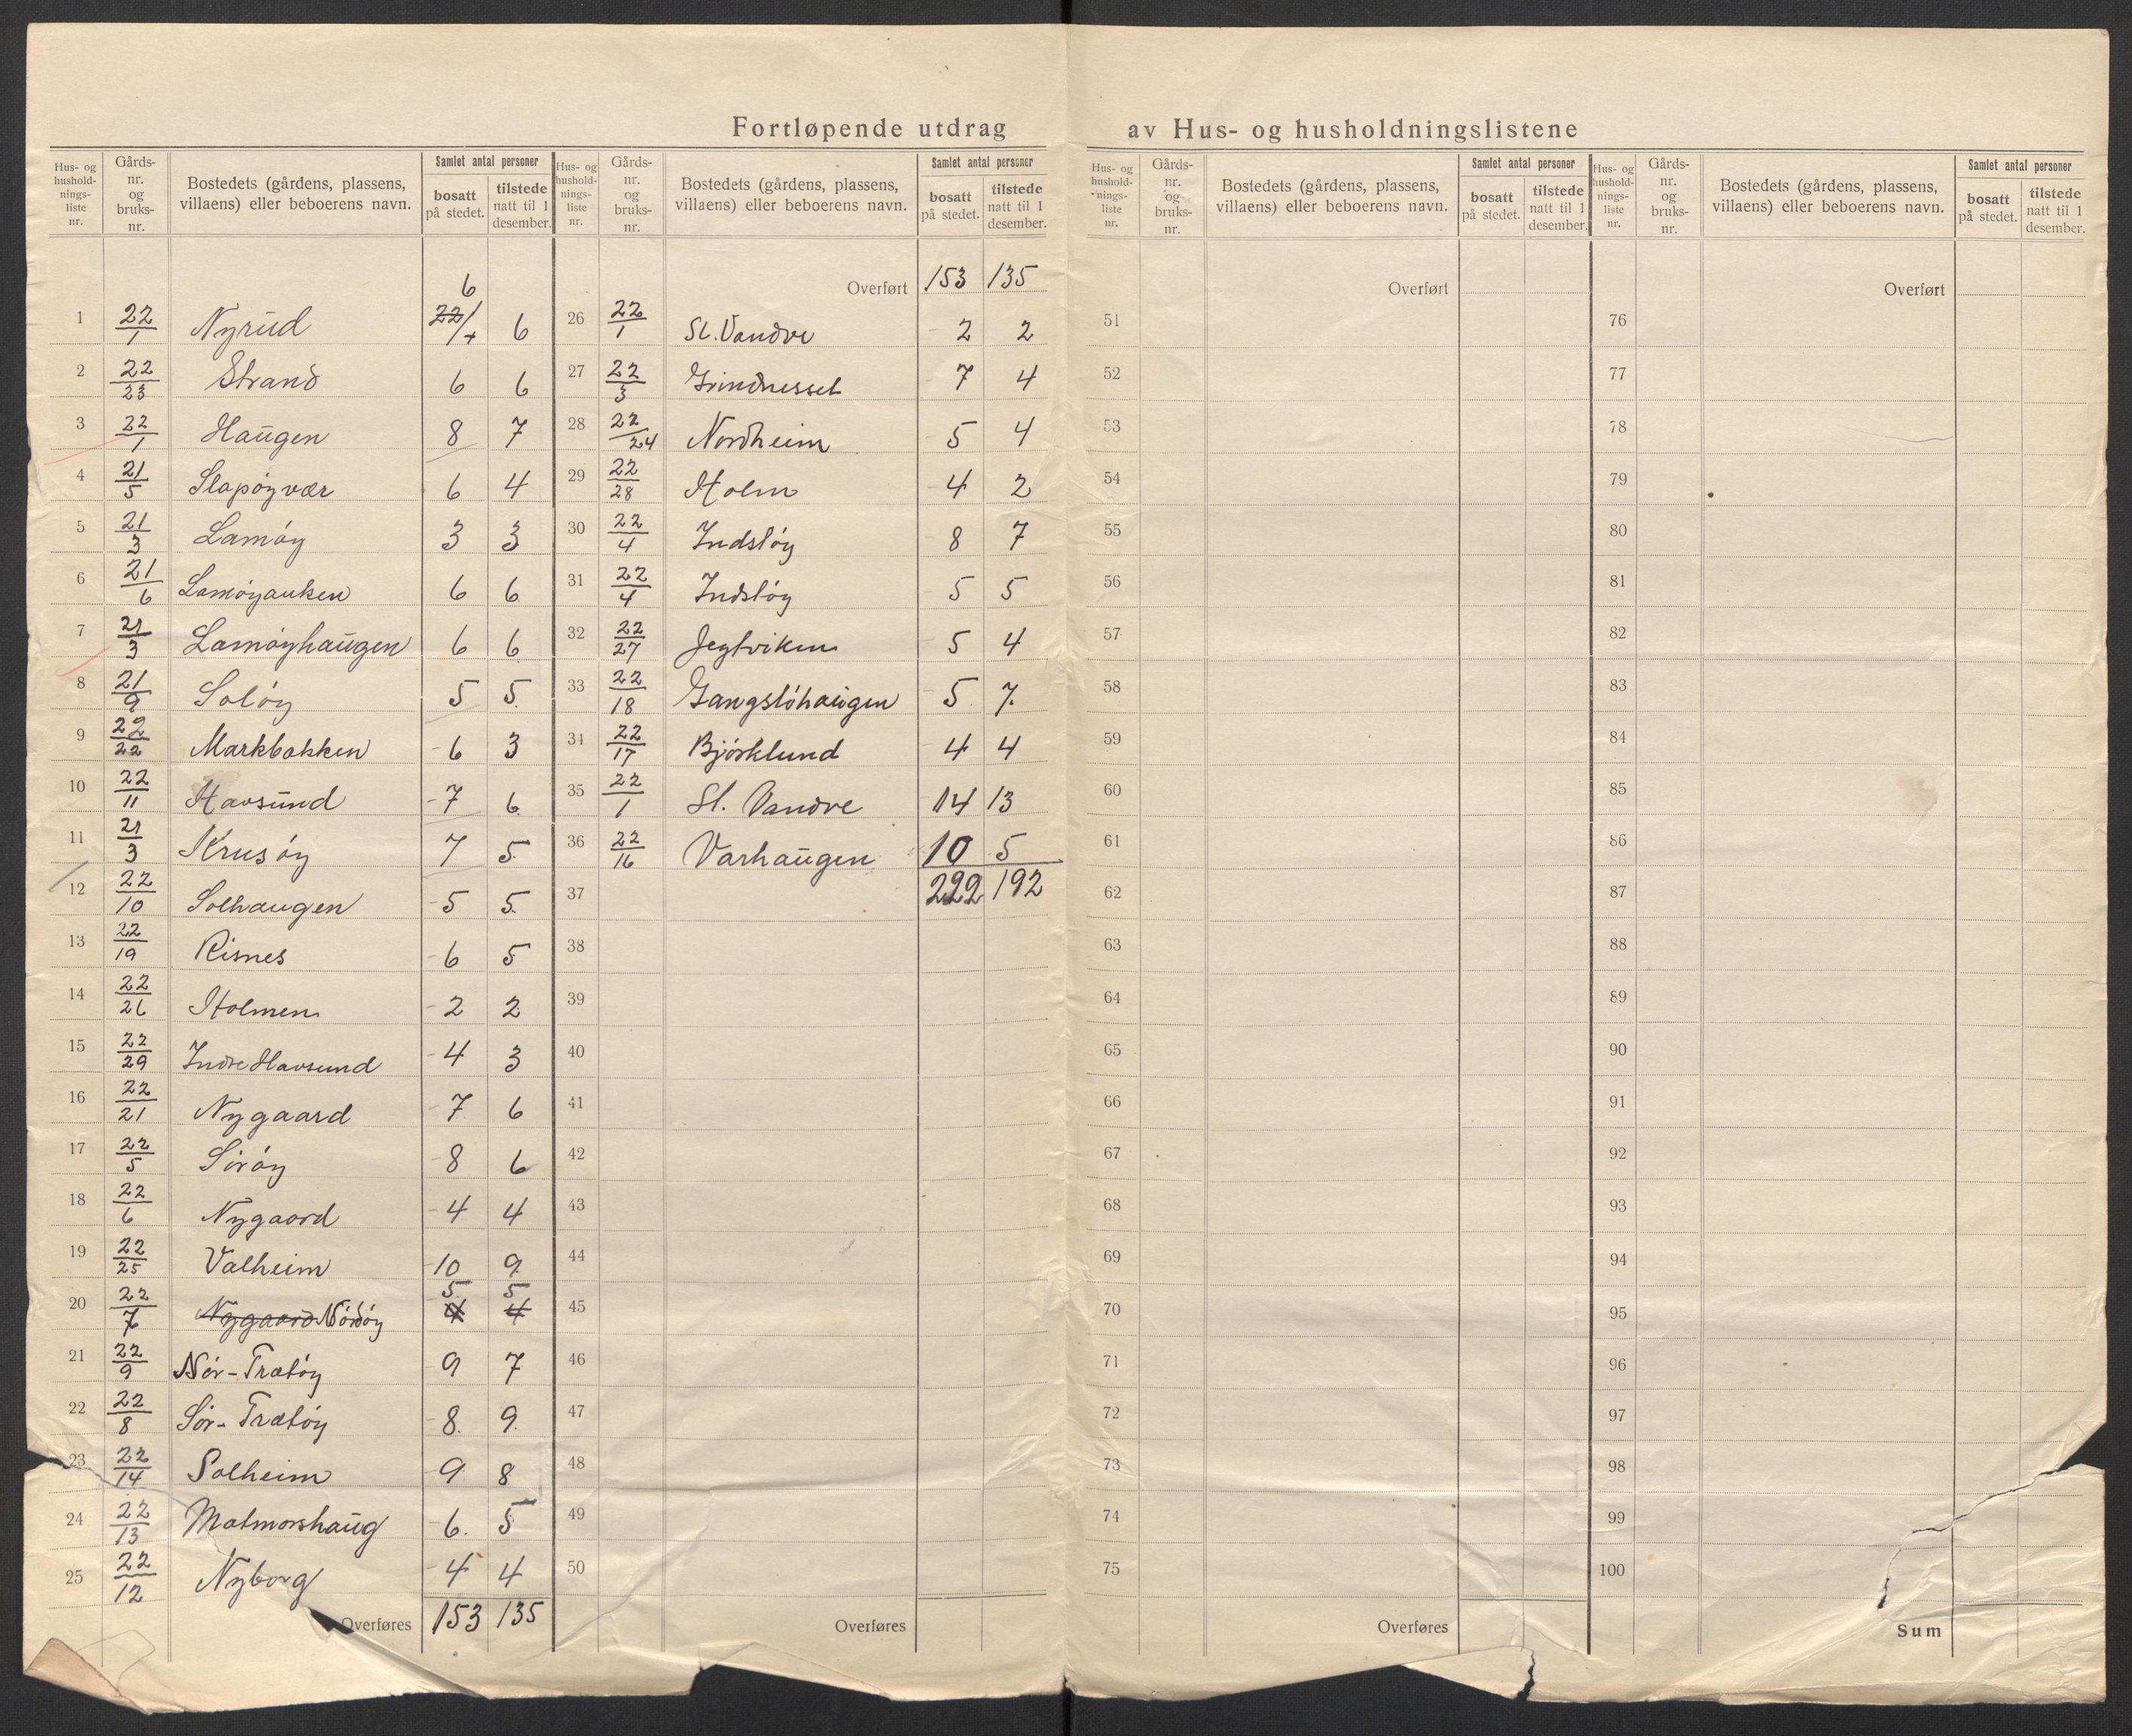 Fortløpende utdrag av Hus- og husholdningslistene
Hus- og hushold- nings- liste nr. | Gårds- nr. og bruks- nr. | Bostedets (gårdens, plassens, villaens) eller beboerens navn. | Samlet antal personer bosatt på stedet. | tilstede natt til 1 desember.
6
1 22/1 Nyrud 22/1 6
2 22/23 Strand 6 6
3 22/1 Haugen 8 7
4 21/5 Slapøyvær 6 4
5 21/3 Lamøy 3 3
6 21/6 Lamøyauken 6 6
7 21/3 Lamøyhaugen 6 6
8 21/9 Soløy 5 5
9 22/22 Markbakken 6 3
10 22/11 Havsund 7 6
11 21/3 Krusøy 7 5
12 22/10 Solhaugen 5 5
13 22/19 Risnes 6 5
14 22/26 Holmen 2 2
15 22/29 Indre Havsund 4 3
16 22/21 Nygaard 7 6
17 22/5 Sørøy 8 6
18 22/6 Nygaard 4 4
19 22/25 Valheim 10 9
5 5
20 22/7 Nygaard Nordøy 4 4
21 22/9 Nor-Trætøy 9 7
22 22/8 Sør-Trætøy 8 9
23 22/14 Solheim 9 8
24 22/13 Matmorshaug 6 5
25 22/12 Nyborg 4 4
Overføres 153 135
Hus- og hushold- nings- liste nr. | Gårds- nr. og bruks- nr. | Bostedets (gårdens, plassens, villaens) eller beboerens navn. | Samlet antal personer bosatt på stedet. | tilstede natt til 1 desember.
Overført 153 135
26 22/1 St. Vandve 2 2
27 22/3 Grindnesset 7 4
28 22/24 Nordheim 5 4
29 22/28 Holm 4 2
30 22/4 Indsløy 8 7
31 22/4 Indsløy 5 5
32 22/27 Jegtviken 5 4
33 22/18 Gangsløhaugen 5 7
34 22/17 Bjørklund 4 4
35 22/1 St. Vandve 14 13
36 22/16 Varhaugen 10 5
37 222 192
38
39
40
41
42
43
44
45
46
47
48
49
50
Overføres
Hus- og hushold- nings- liste nr. | Gårds- nr. og bruks- nr. | Bostedets (gårdens, plassens, villaens) eller beboerens navn. | Samlet antal personer bosatt på stedet. | tilstede natt til 1 desember.
Overført
51
52
53
54
55
56
57
58
59
60
61
62
63
64
65
66
67
68
69
70
71
72
73
74
75
Overføres
Hus- og hushold- nings- liste nr. | Gårds- nr. og bruks- nr. | Bostedets (gårdens, plassens, villaens) eller beboerens navn. | Samlet antal personer bosatt på stedet. | tilstede natt til 1 desember.
Overført
76
77
78
79
80
81
82
83
84
85
86
87
88
89
90
91
92
93
94
95
96
97
98
99
100
Sum